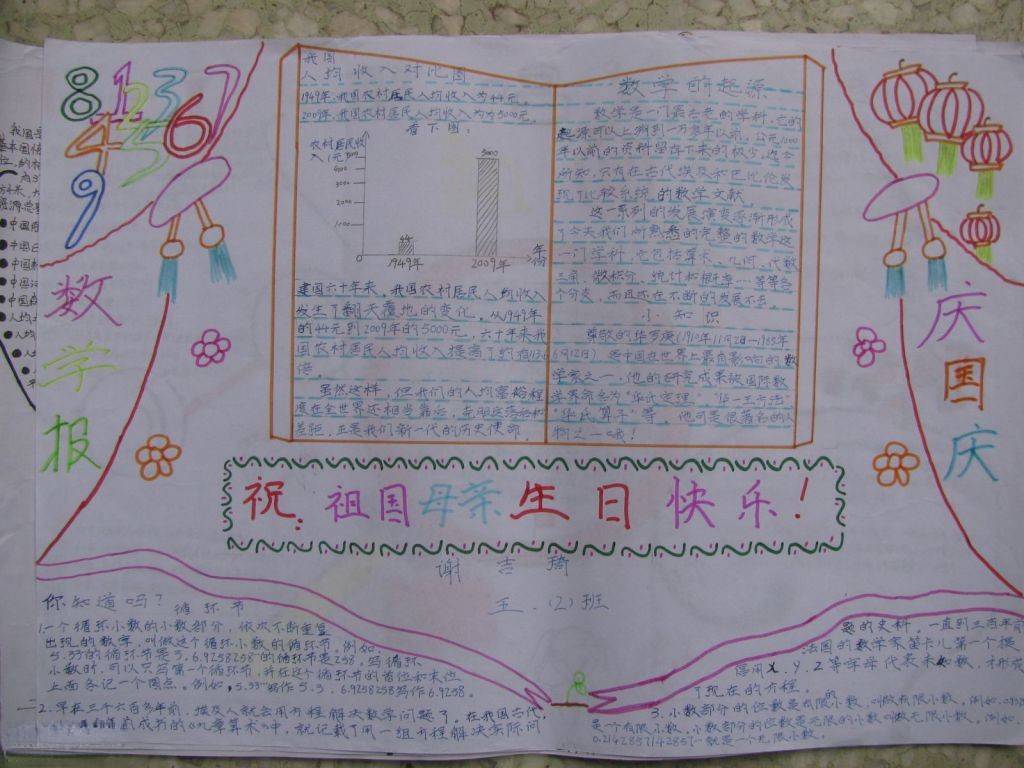 8 1 2 3 7
4 5 6
9
数学报
庆国庆
我国
人均收入对比图
1949年,我国农村居民人均收入为44元。
2009年,我国农村居民人均收入为5000元。
看下图:
农村居民收
入(元)
5000
4000
3000
2000
1000
0
44
5000
1949年
2009年
年份
建国六十年来,我国农村居民人均收入
发生了翻天覆地的变化。从1949年
的44元到2009年的5000元。六十年来我
国农村居民人均收入提高了约113.6
倍。
虽然这样,但我们的人均富裕程
度在全世界还相当靠后,去明这落后和
差距,正是我们新一代的历史使命。
数学的起源
数学是一门最古老的学科,它的
起源可以上溯到一万多年以前。公元1000
年以前的资料留存下来的极少。迄今
所知,只有在古代埃及和巴比伦发
现了比较系统的数学文献。
这一系列的发展演变逐渐形成
了今天我们所熟悉的完整的数学这
一门学科,它包括算术、几何、代数
三角、微积分、统计和概率…等等各
个分支,而且还在不断的发展下去。
小知识
尊敬的华罗庚(1910年11月12日—1985年
6月12日)是中国在世界上最有影响的数
学家之一,他的研究成果被国际数
学界命名为“华氏定理”“华—王方法”
“华氏算子”等。他可是很著名的人
物之一哦!
祝:祖国母亲生日快乐!
谢吉琦
五.(2)班
你知道吗?
循环节
1.一个循环小数的小数部分,依次不断重复
出现的数字,叫做这个循环小数的循环节。例如:
5.33的循环节是3,6.9258258的循环节是258。写循环
小数时,可以只写第一个循环节,并在这个循环节的首位和末位
上面各记一个圆点。例如,5.33写作5.3,6.9258258写作6.9258。
2.早在三千六百多年前,埃及人就会用方程解决数学问题了。在我国古代,
前成书的《九章算术》中,就记载了用一组方程解决实际问
题的史料。一直到三百年前
法国的数学家笛卡儿第一个提
倡用x、y、z等字母代表未知数,才形成
了现在的方程。
3.小数部分的位数是有限的小数,叫做有限小数。例如:
是个有限小数。小数部分的位数是无限的小数叫做无限小数。例如,
0.2142857142857…就是一个无限小数。